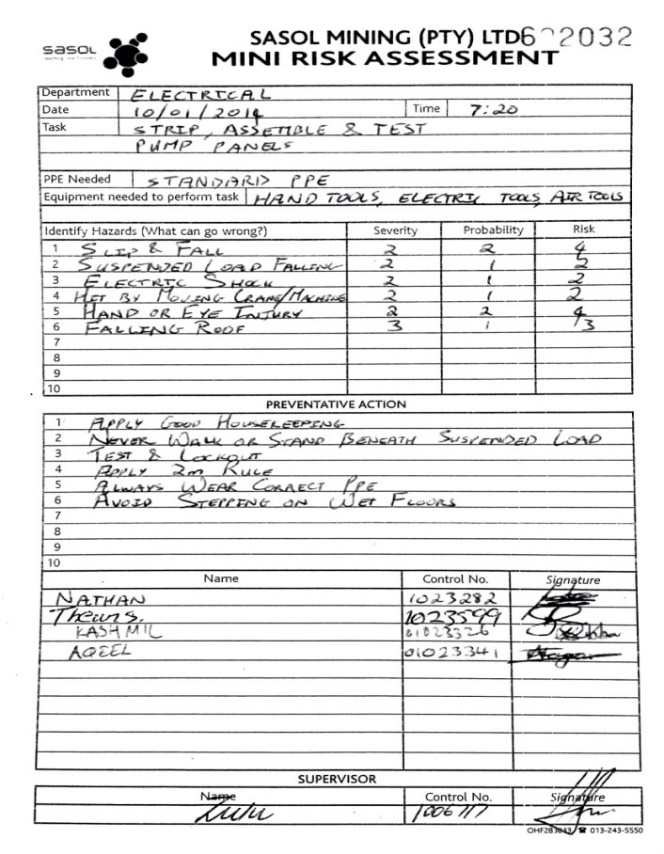 SASOL MINING (PTY) LTD 6 2032
sasol
MINI RISK ASSESSMENT
Department ELECTRICAL
Date 10/01/2014 Time 7:20
Task STRIP, ASSEMBLE & TEST
PUMP PANELS
PPE Needed STANDARD PPE
Equipment needed to perform task HAND TOOLS, ELECTRIC TOOLS, AIR TOOLS
Identify Hazards (What can go wrong?) Severity Probability Risk
1 SLIP & FALL 2 2 4
2 SUSPENDED LOAD FALLING 2 1 2
3 ELECTRIC SHOCK 2 1 2
4 HIT BY MOVING CRANE/MACHINE 2 1 2
5 HAND OR EYE INJURY 2 2 4
6 FALLING ROOF 3 1 3
7
8
9
10
PREVENTATIVE ACTION
1 APPLY GOOD HOUSEKEEPING
2 NEVER WALK OR STAND BENEATH SUSPENDED LOAD
3 TEST & LOCKOUT
4 APPLY 2m RULE
5 ALWAYS WEAR CORRECT PPE
6 AVOID STEPPING ON WET FLOORS
7
8
9
10
Name Control No. Signature
NATHAN 1023282
Theuns. 1023599
KASHMIL 01023326
AQEEL 01023341
SUPERVISOR
Name Control No. Signature
Zulu 1006117
013-243-5550